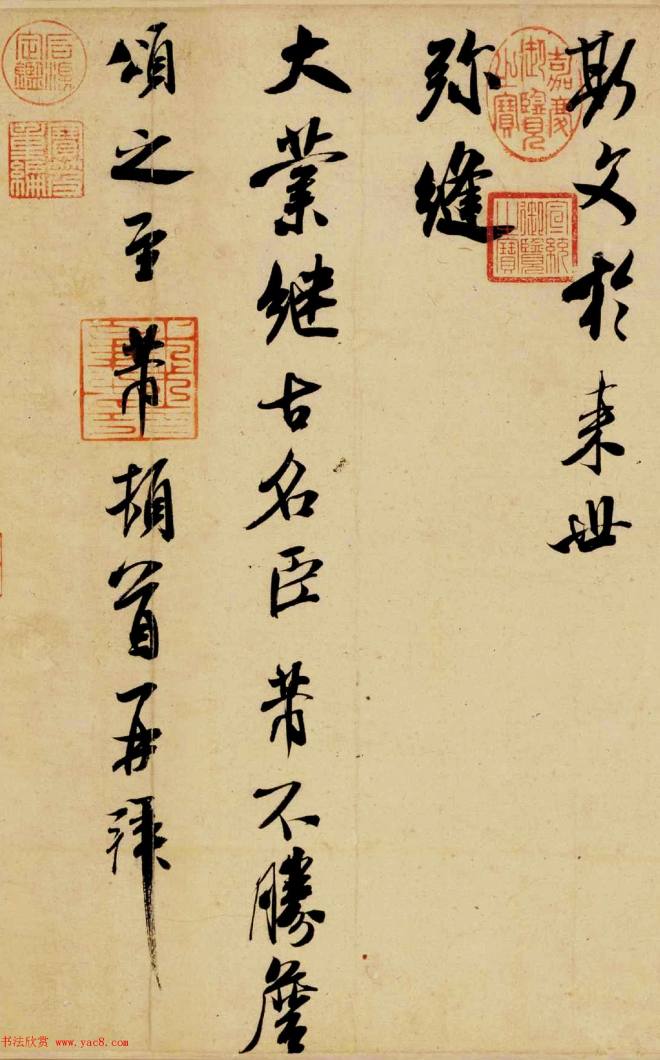 斯文於来世
嘉慶御覽之寶
弥縫
宣統御覽之寶
大業継古名臣芾不勝詹
頌之至芾頓首再拜
石渠定鑑
寶笈重編
书法欣赏 www.yac8.com